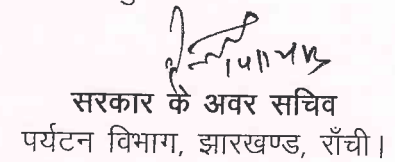 सरकार के अवर सचिव
पर्यटन विभाग, झारखण्ड, राँची।